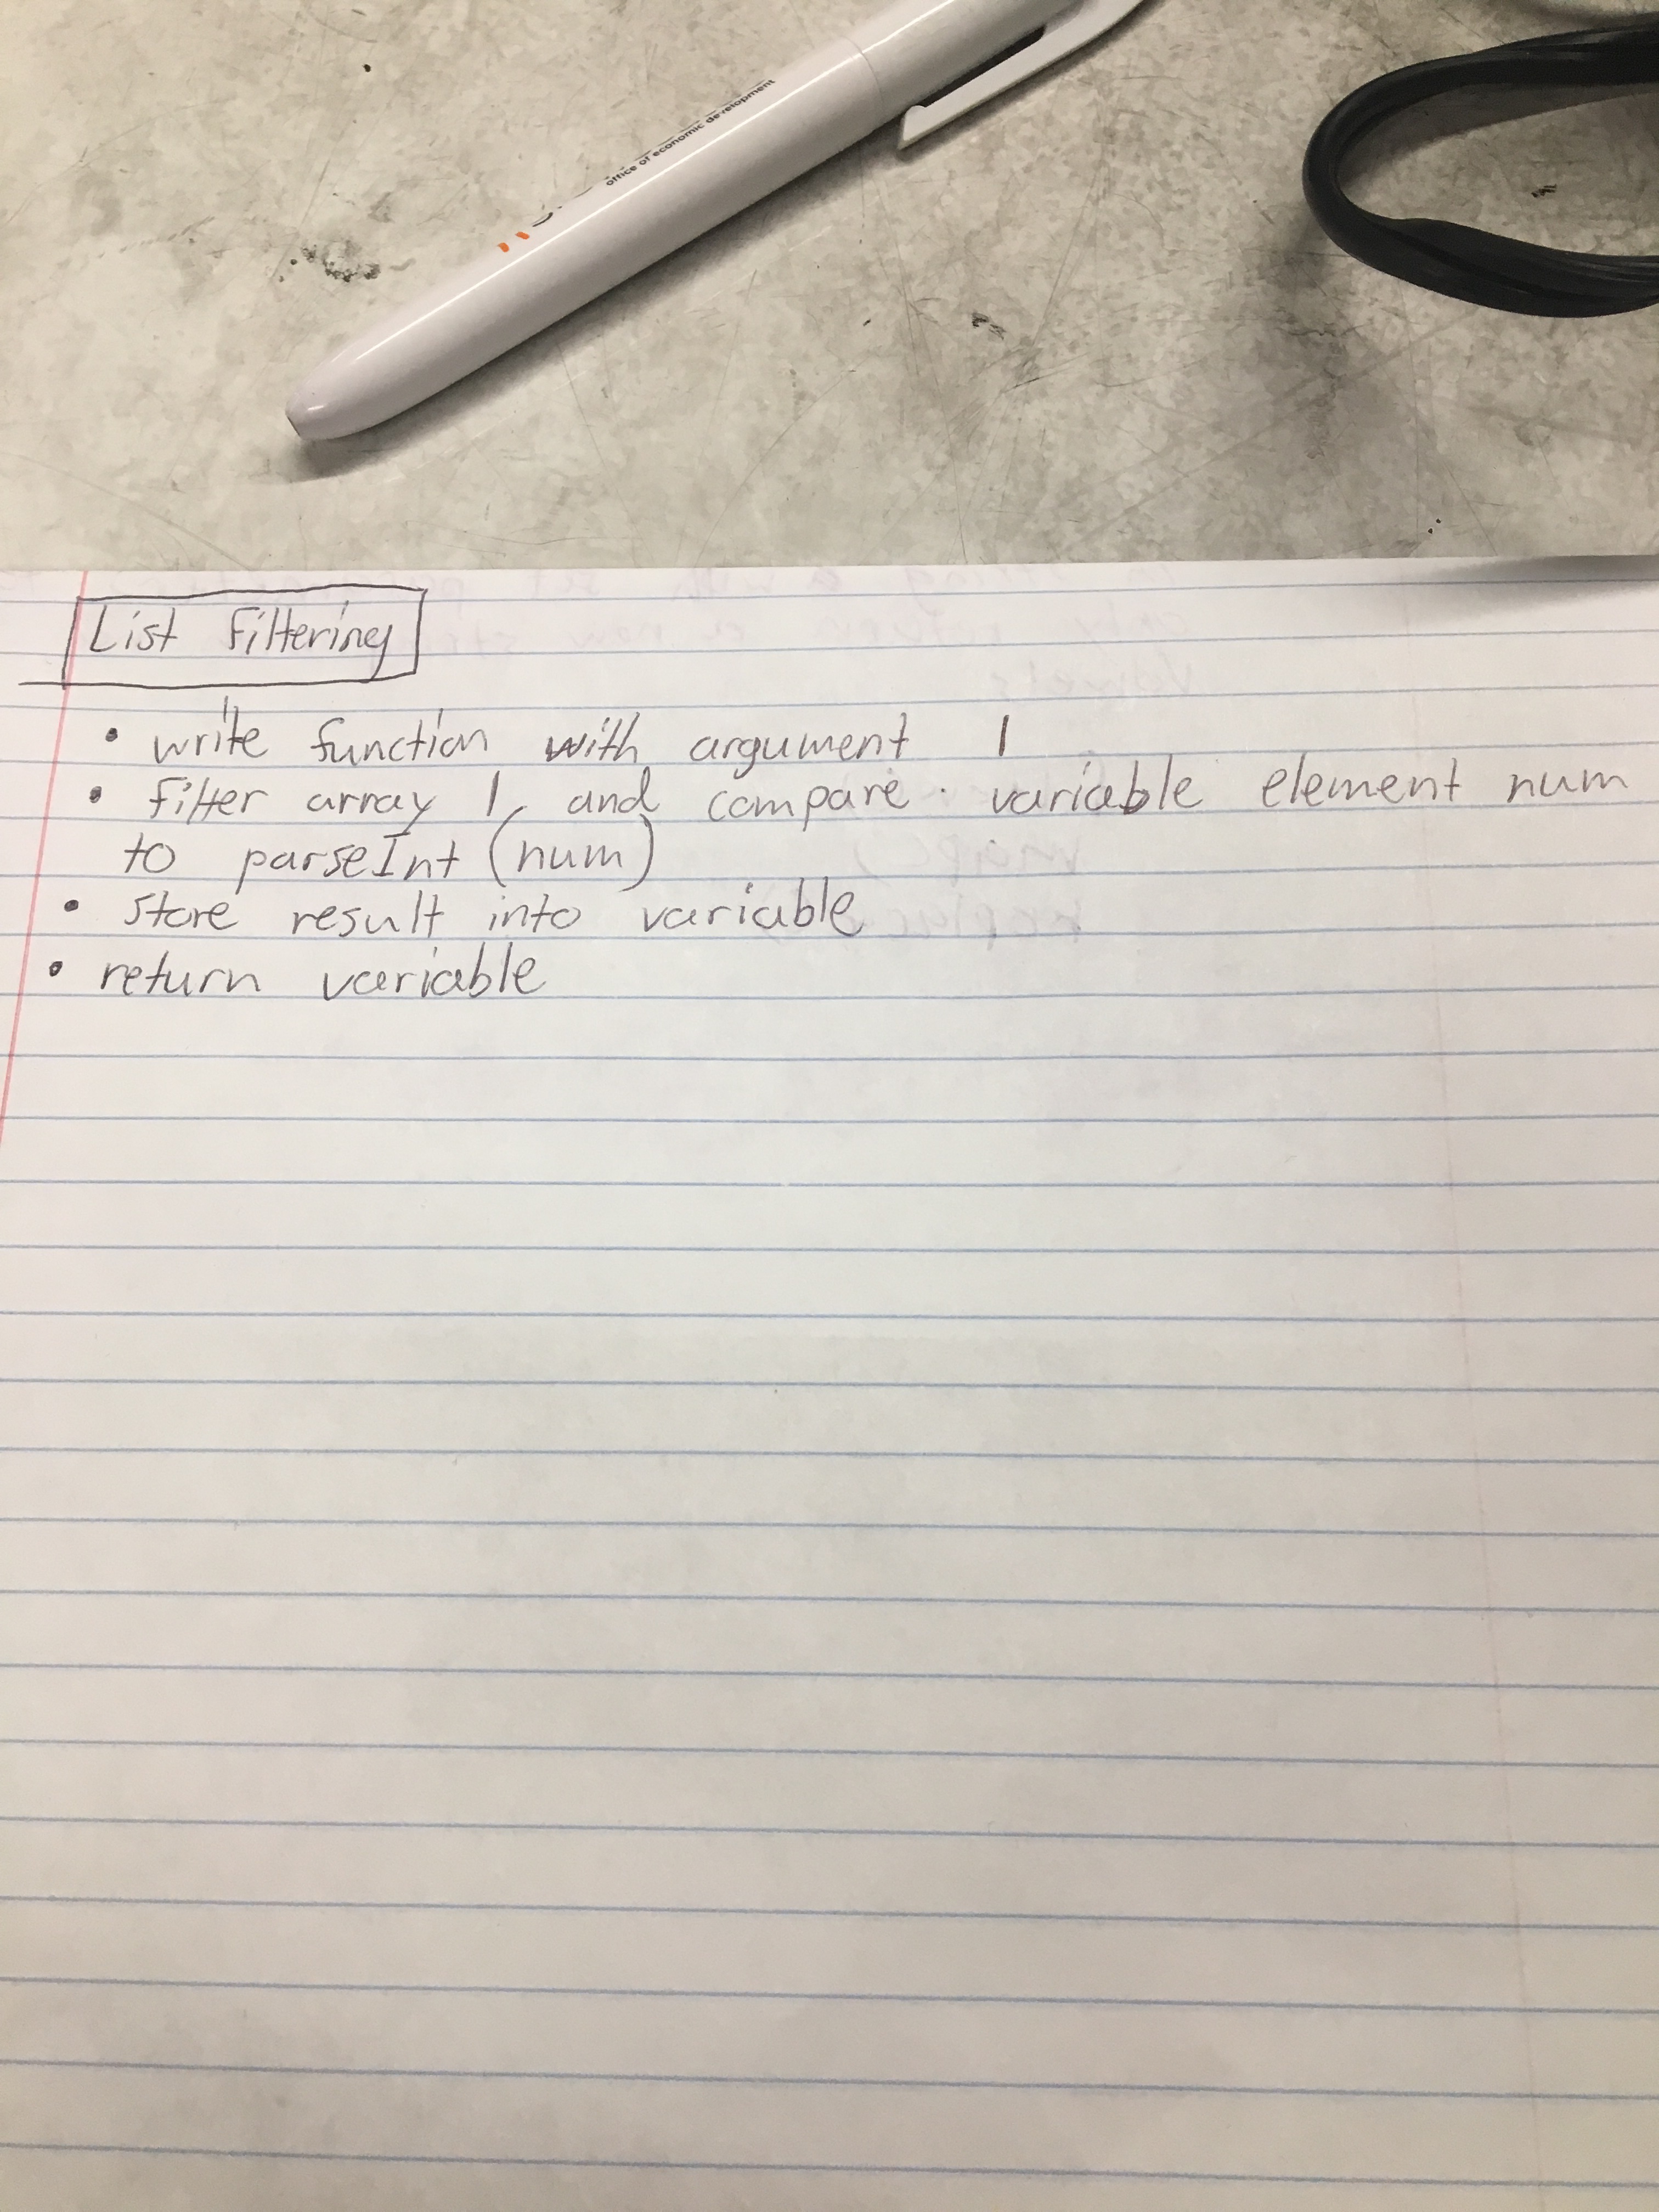 office of economic development
List Filtering
• write function with argument l
• filter array l, and compare variable element num
to parseInt (num)
• store result into variable
• return variable